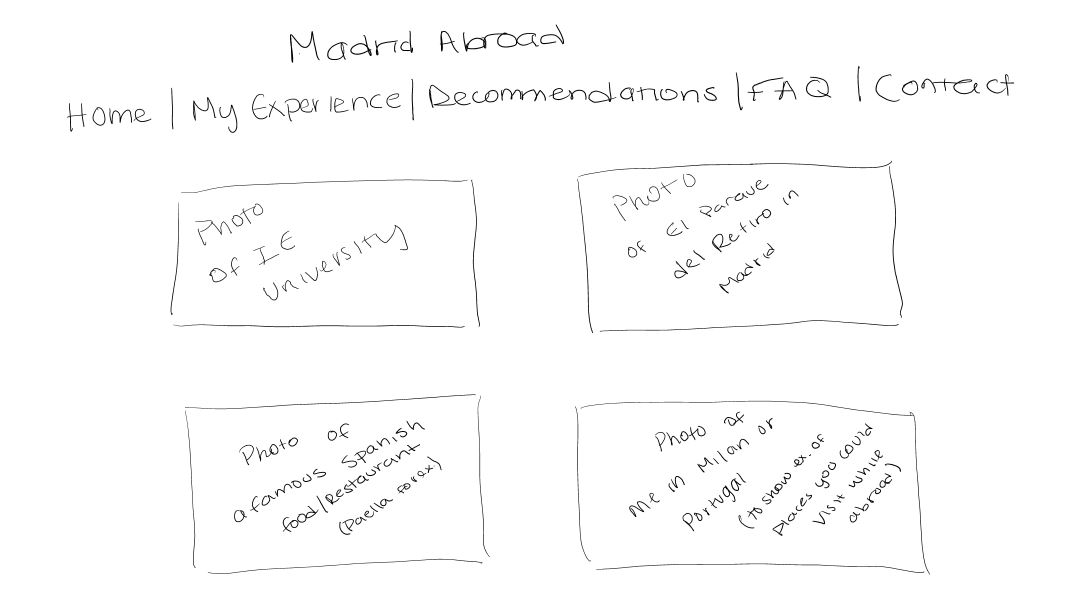 Madrid Abroad
Home | My Experience | Recommendations | FAQ | Contact
Photo
of IE
University
Photo
of El Parque
del Retiro in
Madrid
Photo of
a famous Spanish
food/Restaurant
(Paella for ex)
Photo of
me in Milan or
Portugal
(to show ex. of
places you could
visit while
abroad)